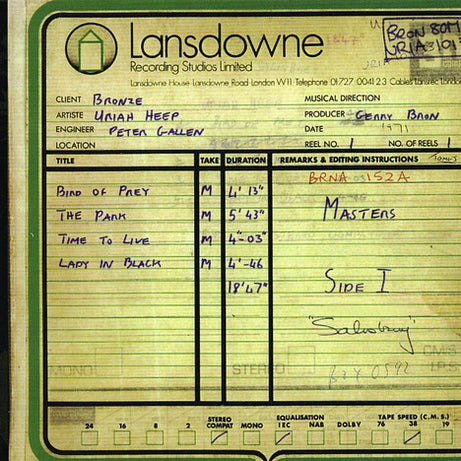 Lansdowne
Recording Studios Limited
Lansdowne House Lansdowne Road London W11 Telephone 01 727 0041 2 3 Cables Lansrec London
BRON 80M
URIA3101
CLIENT BRONZE
MUSICAL DIRECTION
ARTISTE URIAH HEEP
PRODUCER GERRY BRON
ENGINEER PETER GALLEN
DATE 1971
LOCATION
REEL NO. 1 NO. OF REELS 1
TITLE TAKE DURATION REMARKS & EDITING INSTRUCTIONS
BRNA 152A
BIRD OF PREY M 4' 13"
THE PARK M 5' 43"
MASTERS
TIME TO LIVE M 4"-03"
LADY IN BLACK M 4'-46
18'47"
SIDE I
"Salisbury"
MONO STEREO
24 16 8 2 STEREO COMPAT MONO EQUALISATION IEC NAB DOLBY TAPE SPEED (C.M.S.) 76 38 19